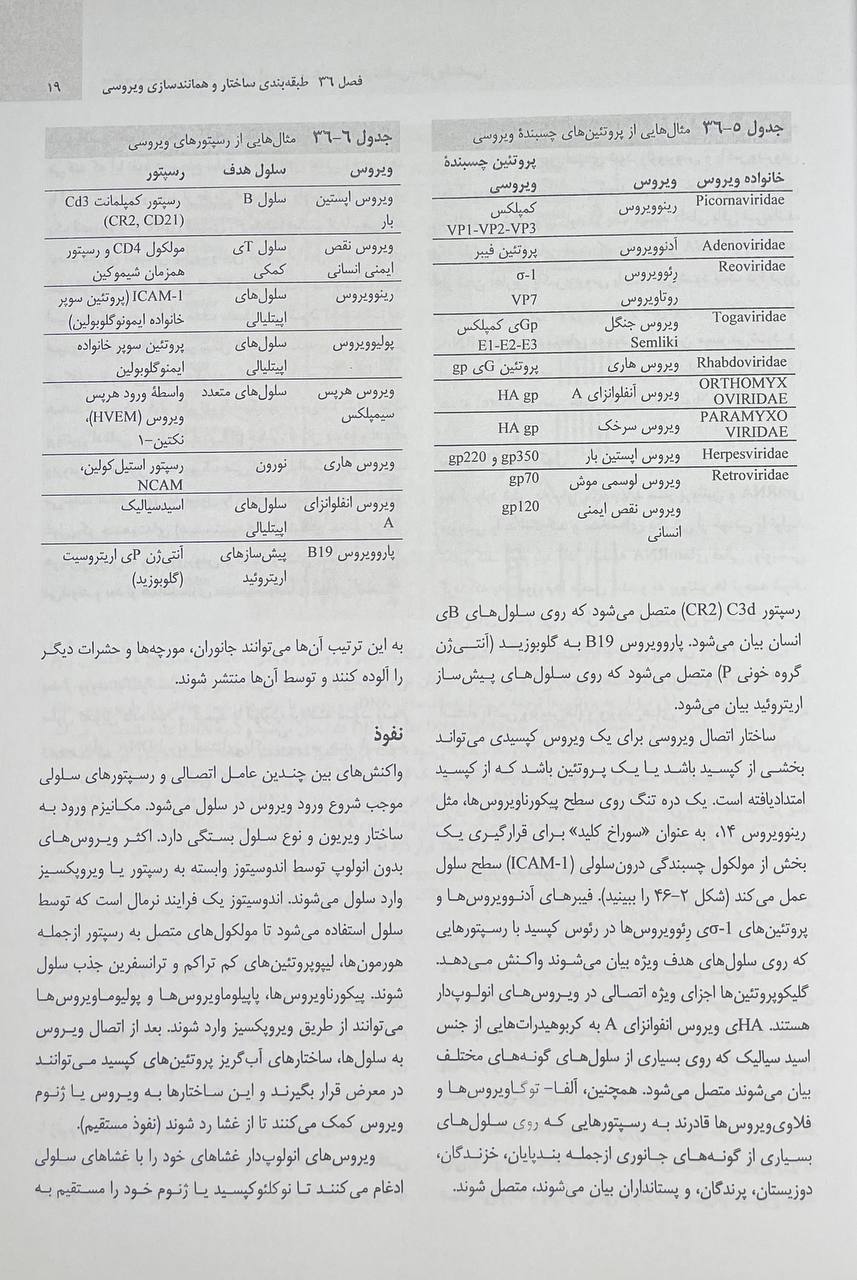 فصل ۳۶ طبقه‌بندی ساختار و همانندسازی ویروسی ۱۹
جدول ۵-۳۶ مثال‌هایی از پروتئین‌های چسبندهٔ ویروسی
خانواده ویروس ویروس پروتئین چسبندهٔ ویروسی
Picornaviridae رینوویروس کمپلکس VP1-VP2-VP3
Adenoviridae آدنوویروس پروتئین فیبر
Reoviridae رِئوویروس σ-1
روتاویروس VP7
Togaviridae ویروس جنگل Semliki Gpی کمپلکس E1-E2-E3
Rhabdoviridae ویروس هاری پروتئین Gی gp
ORTHOMYXOVIRIDAE ویروس آنفلوانزای A HA gp
PARAMYXOVIRIDAE ویروس سرخک HA gp
Herpesviridae ویروس اپستین بار gp350 و gp220
Retroviridae ویروس لوسمی موش gp70
ویروس نقص ایمنی انسانی gp120
رسپتور C3d (CR2) متصل می‌شود که روی سلول‌های Bی
انسان بیان می‌شود. پاروویروس B19 به گلوبوزید (آنتی‌ژن
گروه خونی P) متصل می‌شود که روی سلول‌های پیش‌ساز
اریتروئید بیان می‌شود.
ساختار اتصال ویروسی برای یک ویروس کپسیدی می‌تواند
بخشی از کپسید باشد یا یک پروتئین باشد که از کپسید
امتدادیافته است. یک دره تنگ روی سطح پیکورناویروس‌ها، مثل
رینوویروس ۱۴، به عنوان «سوراخ کلید» برای قرارگیری یک
بخش از مولکول چسبندگی درون‌سلولی (ICAM-1) سطح سلول
عمل می‌کند (شکل ۲-۴۶ را ببینید). فیبرهای آدنوویروس‌ها و
پروتئین‌های σ-1ی رِئوویروس‌ها در رئوس کپسید با رسپتورهایی
که روی سلول‌های هدف ویژه بیان می‌شوند واکنش می‌دهد.
گلیکوپروتئین‌ها اجزای ویژه اتصالی در ویروس‌های انولوپ‌دار
هستند. HAی ویروس انفوانزای A به کربوهیدرات‌هایی از جنس
اسید سیالیک که روی بسیاری از سلول‌های گونه‌های مختلف
بیان می‌شوند متصل می‌شود. همچنین، آلفا- توگاویروس‌ها و
فلاوی‌ویروس‌ها قادرند به رسپتورهایی که روی سلول‌های
بسیاری از گونه‌های جانوری ازجمله بندپایان، خزندگان،
دوزیستان، پرندگان، و پستانداران بیان می‌شوند، متصل شوند.
جدول ۶-۳۶ مثال‌هایی از رسپتورهای ویروسی
ویروس سلول هدف رسپتور
ویروس اپستین بار سلول B رسپتور کمپلمانت Cd3 (CR2, CD21)
ویروس نقص ایمنی انسانی سلول Tی کمکی مولکول CD4 و رسپتور همزمان شیموکین
رینوویروس سلول‌های اپیتلیالی ICAM-1 (پروتئین سوپر خانواده ایمونوگلوبولین)
پولیوویروس سلول‌های اپیتلیالی پروتئین سوپر خانواده ایمنوگلوبولین
ویروس هرپس سیمپلکس سلول‌های متعدد واسطهٔ ورود هرپس ویروس (HVEM)، نکتین-۱
ویروس هاری نورون رسپتور استیل‌کولین، NCAM
ویروس انفلوانزای A سلول‌های اپیتلیالی اسیدسیالیک
پاروویروس B19 پیش‌سازهای اریتروئید آنتی‌ژن Pی اریتروسیت (گلوبوزید)
به این ترتیب آن‌ها می‌توانند جانوران، مورچه‌ها و حشرات دیگر
را آلوده کنند و توسط آن‌ها منتشر شوند.
نفوذ
واکنش‌های بین چندین عامل اتصالی و رسپتورهای سلولی
موجب شروع ورود ویروس در سلول می‌شود. مکانیزم ورود به
ساختار ویریون و نوع سلول بستگی دارد. اکثر ویروس‌های
بدون انولوپ توسط اندوسیتوز وابسته به رسپتور یا ویروپکسیز
وارد سلول می‌شوند. اندوسیتوز یک فرایند نرمال است که توسط
سلول استفاده می‌شود تا مولکول‌های متصل به رسپتور ازجمله
هورمون‌ها، لیپوپروتئین‌های کم تراکم و ترانسفرین جذب سلول
شوند. پیکورناویروس‌ها، پاپیلوماویروس‌ها و پولیوماویروس‌ها
می‌توانند از طریق ویروپکسیز وارد شوند. بعد از اتصال ویروس
به سلول‌ها، ساختارهای آب‌گریز پروتئین‌های کپسید می‌توانند
در معرض قرار بگیرند و این ساختارها به ویروس یا ژنوم
ویروس کمک می‌کنند تا از غشا رد شوند (نفوذ مستقیم).
ویروس‌های انولوپ‌دار غشاهای خود را با غشاهای سلولی
ادغام می‌کنند تا نوکلئوکپسید یا ژنوم خود را مستقیم به